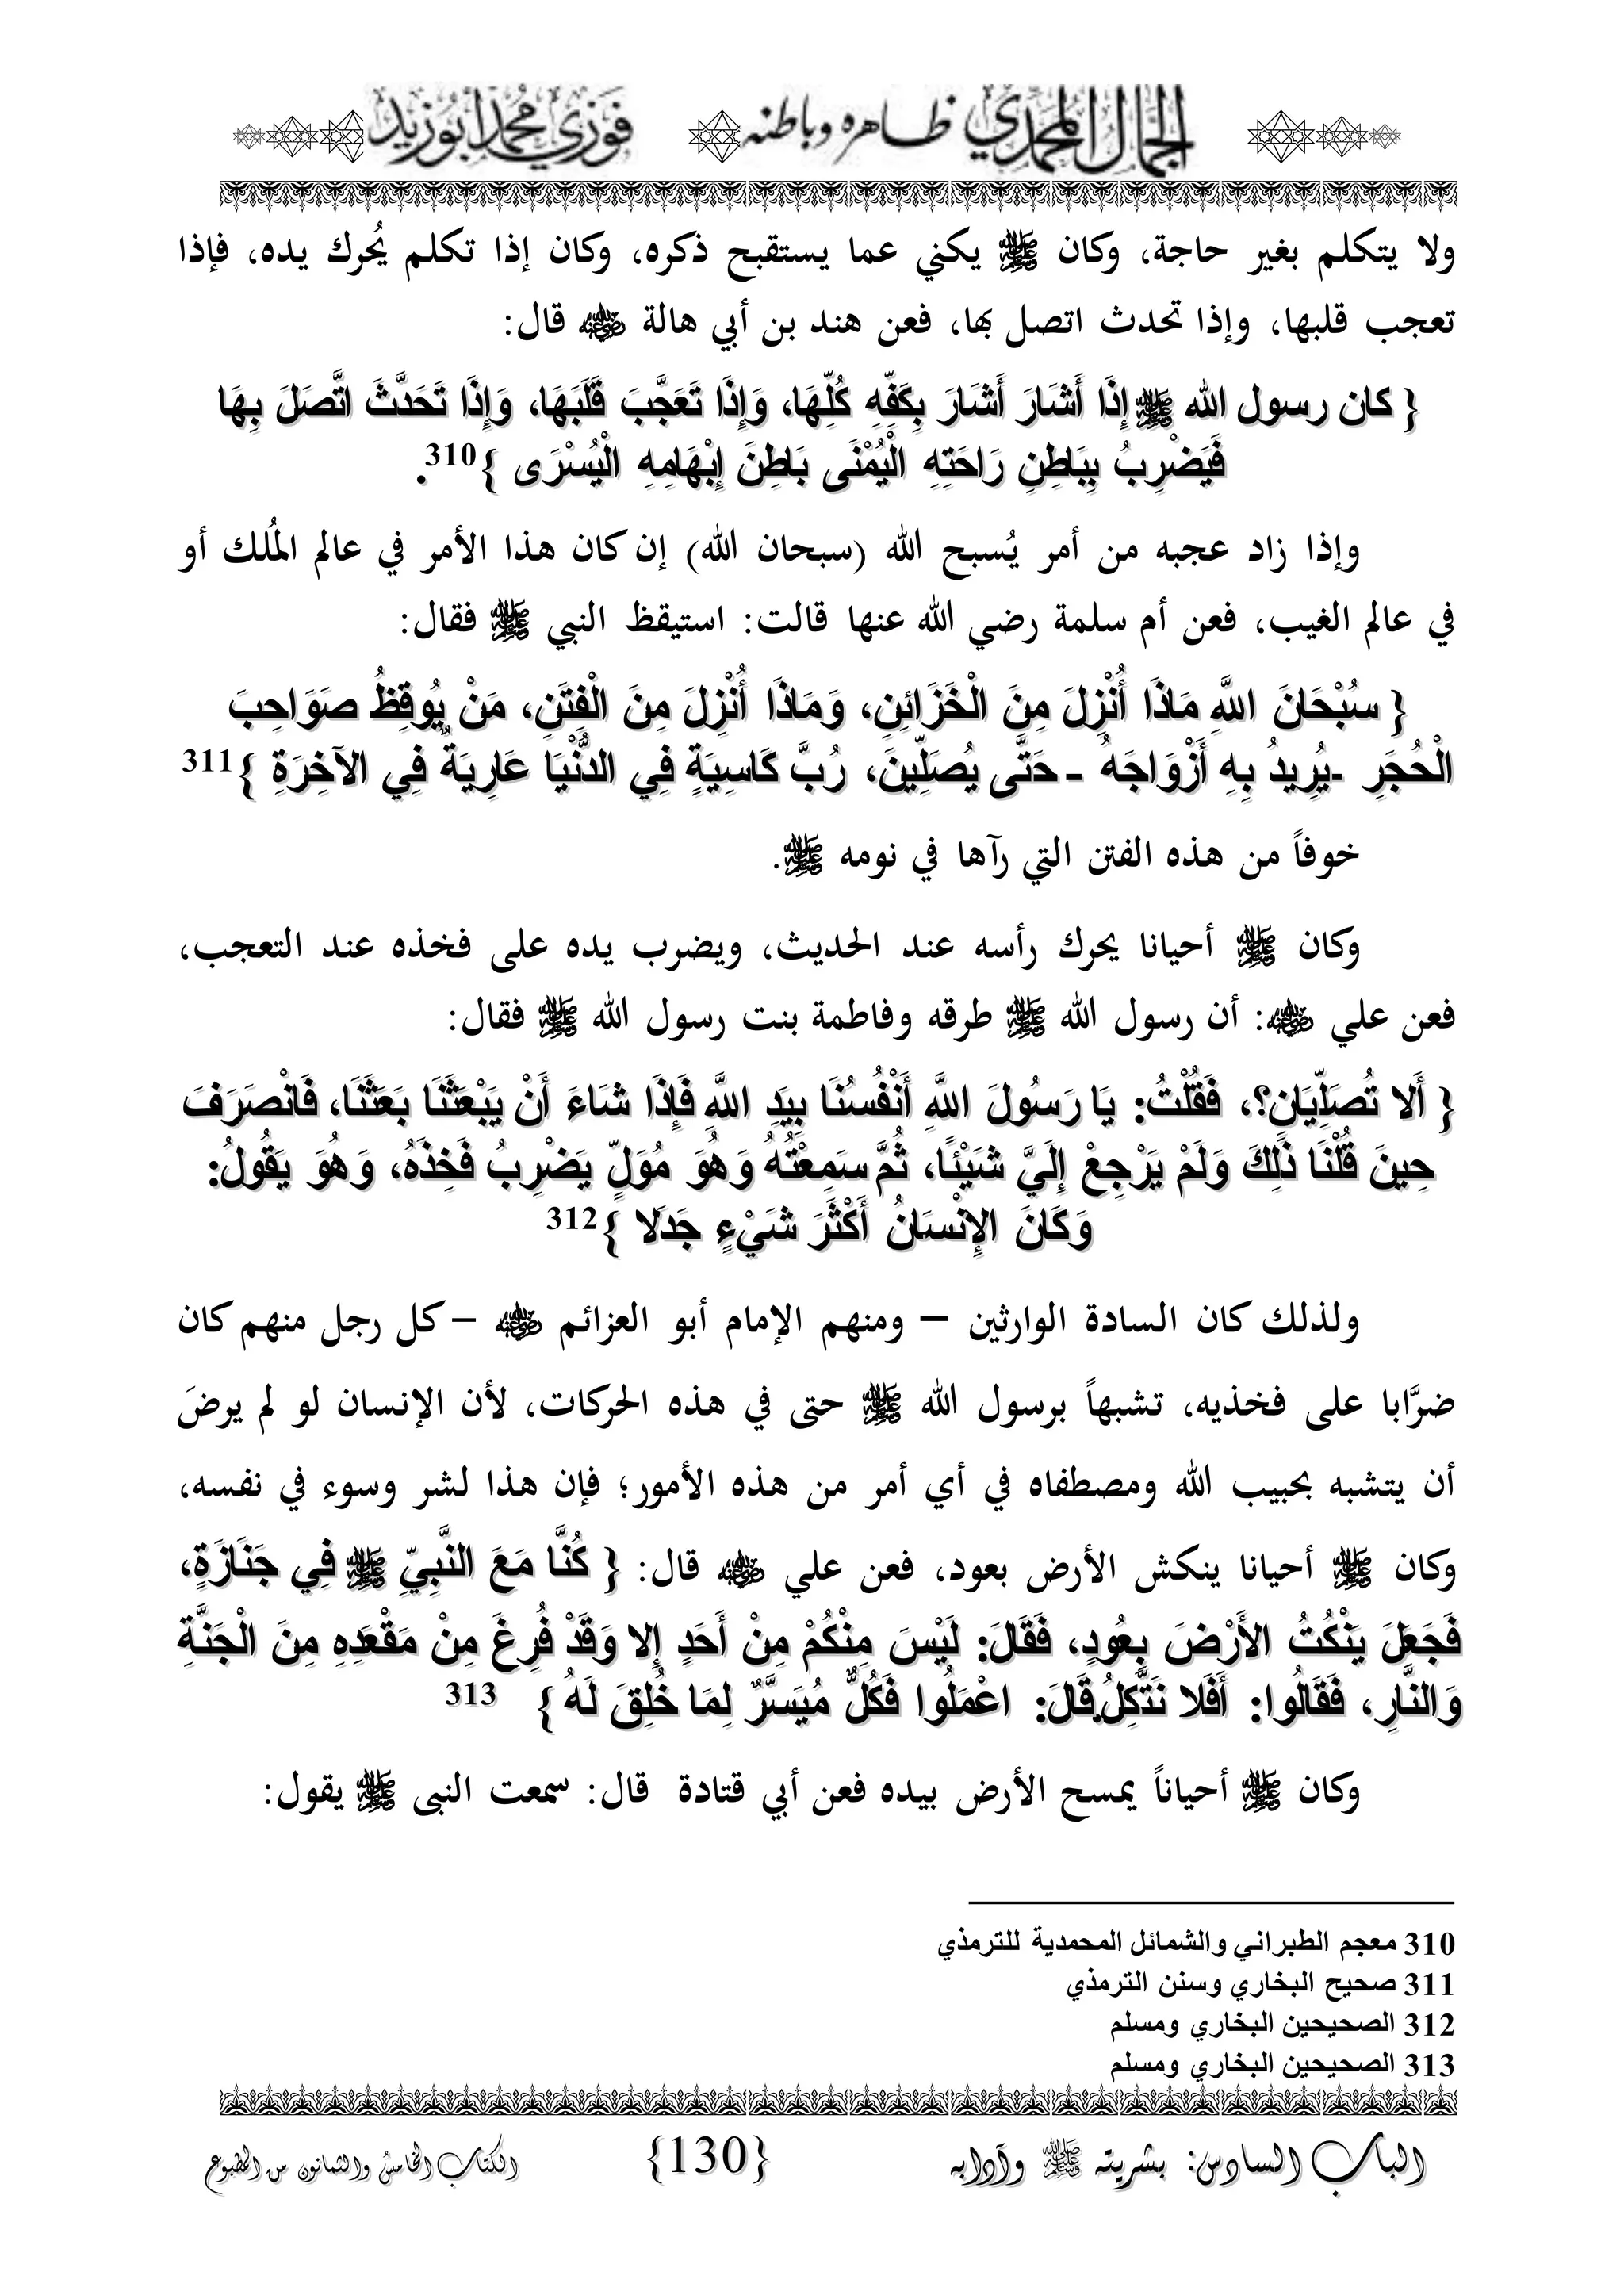 الجمال المحمدي ظاهره وباطنه فوزي محمد أبوزيد
ولا يتكلم بغير حاجة، وكان ﷺ يكني عما يستقبح ذكره، وكان إذا تكلم يُحرك يده، فإذا
تعجب قلبها، وإذا تحدث اتصل بها، فعن هند بن أبي هالة ﷺ قال:
{ كان رسول الله ﷺ إِذَا أَشَارَ أَشَارَ بِكَفِّهِ كُلِّهَا، وَإِذَا تَعَجَّبَ قَلَبَهَا، وَإِذَا تَحَدَّثَ اتَّصَلَ بِهَا
فَيَضْرِبُ بِبَاطِنِ رَاحَتِهِ الْيُمْنَى بَاطِنَ إِبْهَامِهِ الْيُسْرَى }310.
وإذا زاد عجبه من أمر يُسبح الله (سبحان الله) إن كان هذا الأمر في عالم المُلك أو
في عالم الغيب، فعن أم سلمة رضي الله عنها قالت: استيقظ النبي ﷺ فقال:
{ سُبْحَانَ اللَّهِ مَاذَا أُنْزِلَ مِنَ الْخَزَائِنِ، وَمَاذَا أُنْزِلَ مِنَ الْفِتَنِ، مَنْ يُوقِظُ صَوَاحِبَ
الْحُجَرِ -يُرِيدُ بِهِ أَزْوَاجَهُ - حَتَّى يُصَلِّينَ، رُبَّ كَاسِيَةٍ فِي الدُّنْيَا عَارِيَةٌ فِي الآخِرَةِ }311
خوفاً من هذه الفتن التي رآها في نومه ﷺ.
وكان ﷺ أحيانا يحرك رأسه عند الحديث، ويضرب يده على فخذه عند التعجب،
فعن علي رضي الله عنه: أن رسول الله ﷺ طرقه وفاطمة بنت رسول الله ﷺ فقال:
{ أَلا تُصَلِّيَانِ؟، فَقُلْتُ: يَا رَسُولَ اللَّهِ أَنْفُسُنَا بِيَدِ اللَّهِ فَإِذَا شَاءَ أَنْ يَبْعَثَنَا بَعَثَنَا، فَانْصَرَفَ
حِينَ قُلْنَا ذَلِكَ وَلَمْ يَرْجِعْ إِلَيَّ شَيْئًا، ثُمَّ سَمِعْتُهُ وَهُوَ مُوَلٍّ يَضْرِبُ فَخِذَهُ، وَهُوَ يَقُولُ:
وَكَانَ الإِنْسَانُ أَكْثَرَ شَيْءٍ جَدَلا }312
ولذلك كان السادة الوارثين – ومنهم الإمام أبو العزائم رضي الله عنه – كل رجل منهم كان
ضرَّابا على فخذيه، تشبهاً برسول الله ﷺ حتى في هذه الحركات، لأن الإنسان لو لم يرضَ
أن يتشبه بحبيب الله ومصطفاه في أي أمر من هذه الأمور؛ فإن هذا لشر وسوء في نفسه،
وكان ﷺ أحيانا ينكش الأرض بعود، فعن علي رضي الله عنه قال: { كُنَّا مَعَ النَّبِيِّ ﷺ فِي جَنَازَةٍ،
فَجَعَلَ يَنْكُتُ الأَرْضَ بِعُودٍ، فَقَالَ: لَيْسَ مِنْكُمْ مِنْ أَحَدٍ إِلا وَقَدْ فُرِغَ مِنْ مَقْعَدِهِ مِنَ الْجَنَّةِ
وَالنَّارِ، فَقَالُوا: أَفَلا نَتَّكِلُ.قَالَ: اعْمَلُوا فَكُلٌّ مُيَسَّرٌ لِمَا خُلِقَ لَهُ } 313
وكان ﷺ أحياناً يمسح الأرض بيده فعن أبي قتادة قال: سمعت النبى ﷺ يقول:
310 معجم الطبراني والشمائل المحمدية للترمذي
311 صحيح البخاري وسنن الترمذي
312 الصحيحين البخاري ومسلم
313 الصحيحين البخاري ومسلم
الباب السادس: بشريته ﷺ وآدابه {130} الكتاب الخامس والثمانون من المطبوع